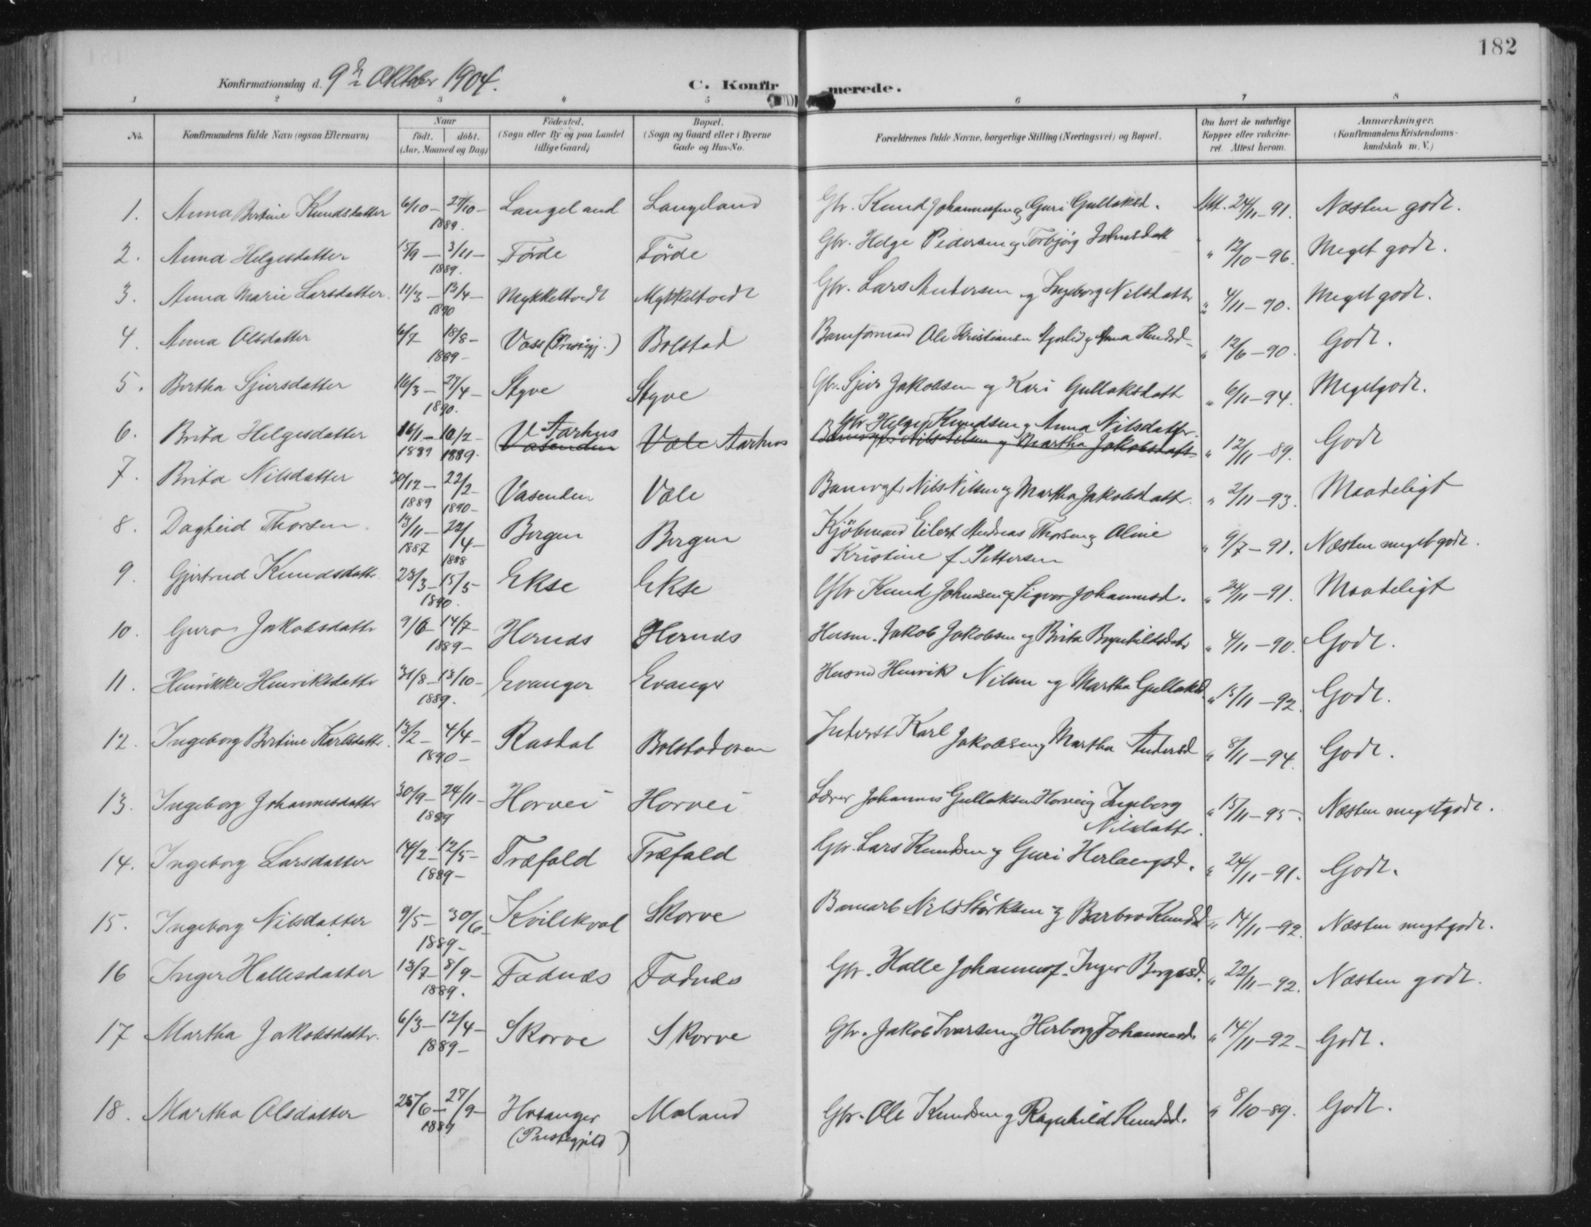 182
Konfirmationsdag d. 9de Oktober 1904.
C. Konfirmerede.
1 2 3 4 5 6 7 8
No. Konfirmandens fulde Navn (ogsaa Efternavn) Naar født, døbt. (Aar, Maaned og Dag) Fødested. (Sogn eller By og paa Landet tillige Gaard) Bopæl. (Sogn og Gaard eller i Byerne Gade og Hus-No. Forældrenes fulde Navne, borgerlige Stilling (Næringsvei) og Bopæl. Om havt de naturlige Kopper eller vakcineret. Attest herom. Anmærkninger. (Konfirmandens Kristendomskundskab m. V.)
1. Anna Bertine Knudsdatter 6/10 – 27/10 – 1889. Langeland Langeland Gbr. Knud Johannessen og Guri Gullaksd. Att. 24/11 – 91. Næsten godt.
2. Anna Helgesdatter 15/9 – 3/11 – 1889. Førde Førde Gbr. Helge Pedersen og Torbjørg Johnsdatt " 12/10 – 96. Meget godt.
3. Anna Marie Larsdatter. 11/3 – 13/4 – 1890 Mykkeltvedt Mykkeltvedt Gbr. Lars Andersen og Ingeborg Nilsdattr " 4/11 – 90. Meget godt.
4. Anna Olsdatter 6/7 18/8 – 1889 – Voss (Præstgj.) Bolstad Baneformand Ole Kristiansen og Anna Knudsd – " 12/6 – 90. Godt.
5. Bertha Sjursdatter 16/3 – 27/4 – 1890. Styve Styve Gbr. Sjur Jakobsen og Kari Gullaksdatt " 6/11 – 94. Meget godt.
6. Brita Helgesdatter 16/1 – 10/2 – 1889 1889. Vasenden Aarhus Væle Aarhus Gbr Helge Knudsen og Anna Nilsdatter Banevogt Nils Nilsen og Martha Jakobsdatt " 12/11 – 89. Godt
7. Brita Nilsdatter 30/12 – 22/2 – 1889 1890 – Vasenden Væle Banevogt Nils Nilsen og Martha Jakobsdatt. " 2/11 – 93. Maadeligt
8. Dagheid Thorsen. 13/11 – 22/4 – 1887 1888 Bergen Bergen Kjøbmand Eilert Andreas Thorsen og Oline Kristine f. Pettersen " 9/7 – 91. Næsten meget godt.
9. Gjertrud Knudsdattr 23/3 – 15/5 – 1890. Ekse Ekse Gbr Knud Johnsen og Sigvor Johannesd. " 24/11 – 91. Maadeligt
10. Guro Jakobsdattr 9/6 – 14/7 – 1889 – Hernæs Hernæs Husm. Jakob Jakobsen og Brita Brynhildsdatr " 4/11 – 90. Godt.
11. Henrikke Henriksdattr 31/8 – 13/10 – 1889. Evanger Evanger Husmd Henrik Nilsen og Martha Gullaksd. " 15/11 – 92. Godt.
12. Ingeborg Bertine Karlsdattr. 13/2 – 4/4 – 1890 – Rasdal Bolstadøren Inderst Karl Jakobsen og Martha Andersd " 8/11 – 94. Godt.
13. Ingeborg Johannesdatter 30/9 – 24/11 – 1889 Horvei Horvei Lærer Johannes Gullaksen Horvei og Ingeborg Nilsdatter " 15/11 – 95. Næsten meget godt.
14. Ingeborg Larsdatter 14/2 – 12/5 – 1889 – Træfald Træfald Gbr. Lars Knudsen og Guri Herlaugsd. " 24/11 – 91. Godt.
15. Ingeborg Nilsdatter 9/5 – 30/6 – 1889 – Kvilekval Skorve Banearb Nils Størksen og Barbro Knudsd " 14/11 – 92. Næsten meget godt.
16 Inger Hallesdatter 13/7 – 8/9 – 1889. Fadnæs Fadnæs Gbr. Halle Johannesf. Inger Bryesd. " 22/11 – 92. Næsten godt.
17 Martha Jakobsdattr. 6/3 – 12/4 – 1889 – Skorve Skorve Gbr. Jakob Ivarsen og Herborg Johannesd. " 14/11 – 92 – Godt.
18. Martha Olsdatter 25/6 – 27/9 – 1889 Hosanger (Præstegjeld) Maland Gbr. Ole Knudsen og Ragnhild Knudsd. " 8/10 – 89. Godt.